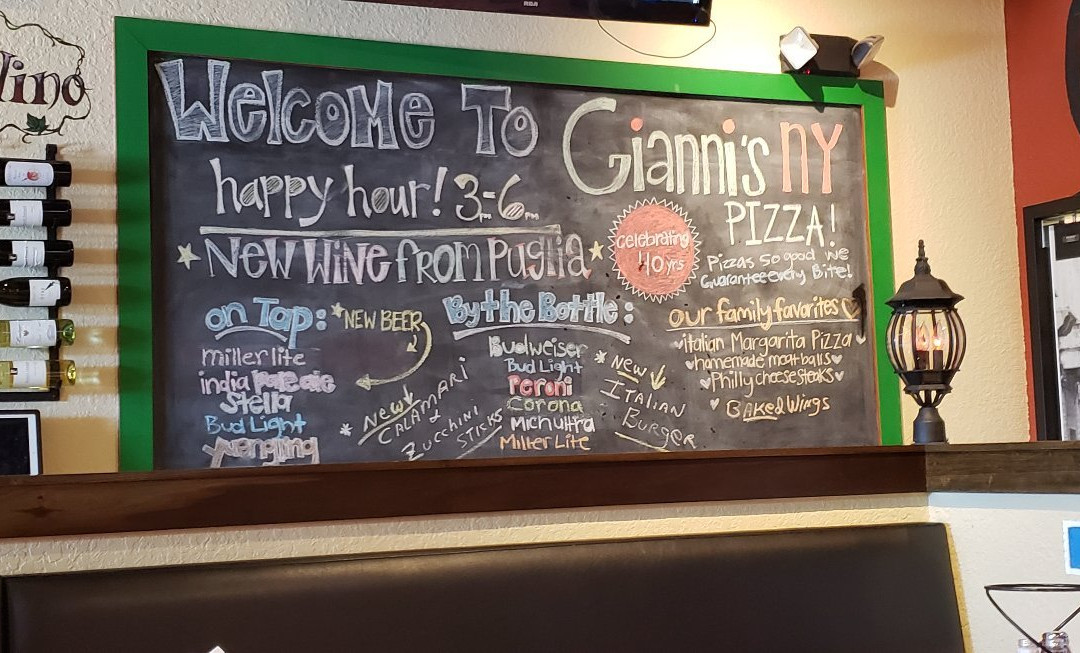 RCA
lino
Welcome To
Gianni's NY
PIZZA!
happy hour! 3pm-6pm
NEW WINE from Puglia
celebrating
40 yrs
Pizzas So good we
Guarantee every Bite!
on Tap:
NEW BEER
miller lite
india Pale ale
Stella
Bud Light
By the Bottle:
Budweiser
Bud Light
Peroni
Corona
Mich ultra
Miller Lite
New
CALAMARI
&
ZUCCHINI
STICKS
New
ITALIAN
Burger
our family favorites
Italian Margarita Pizza
homemade meatballs
Philly cheese steaks
BAKed Wings